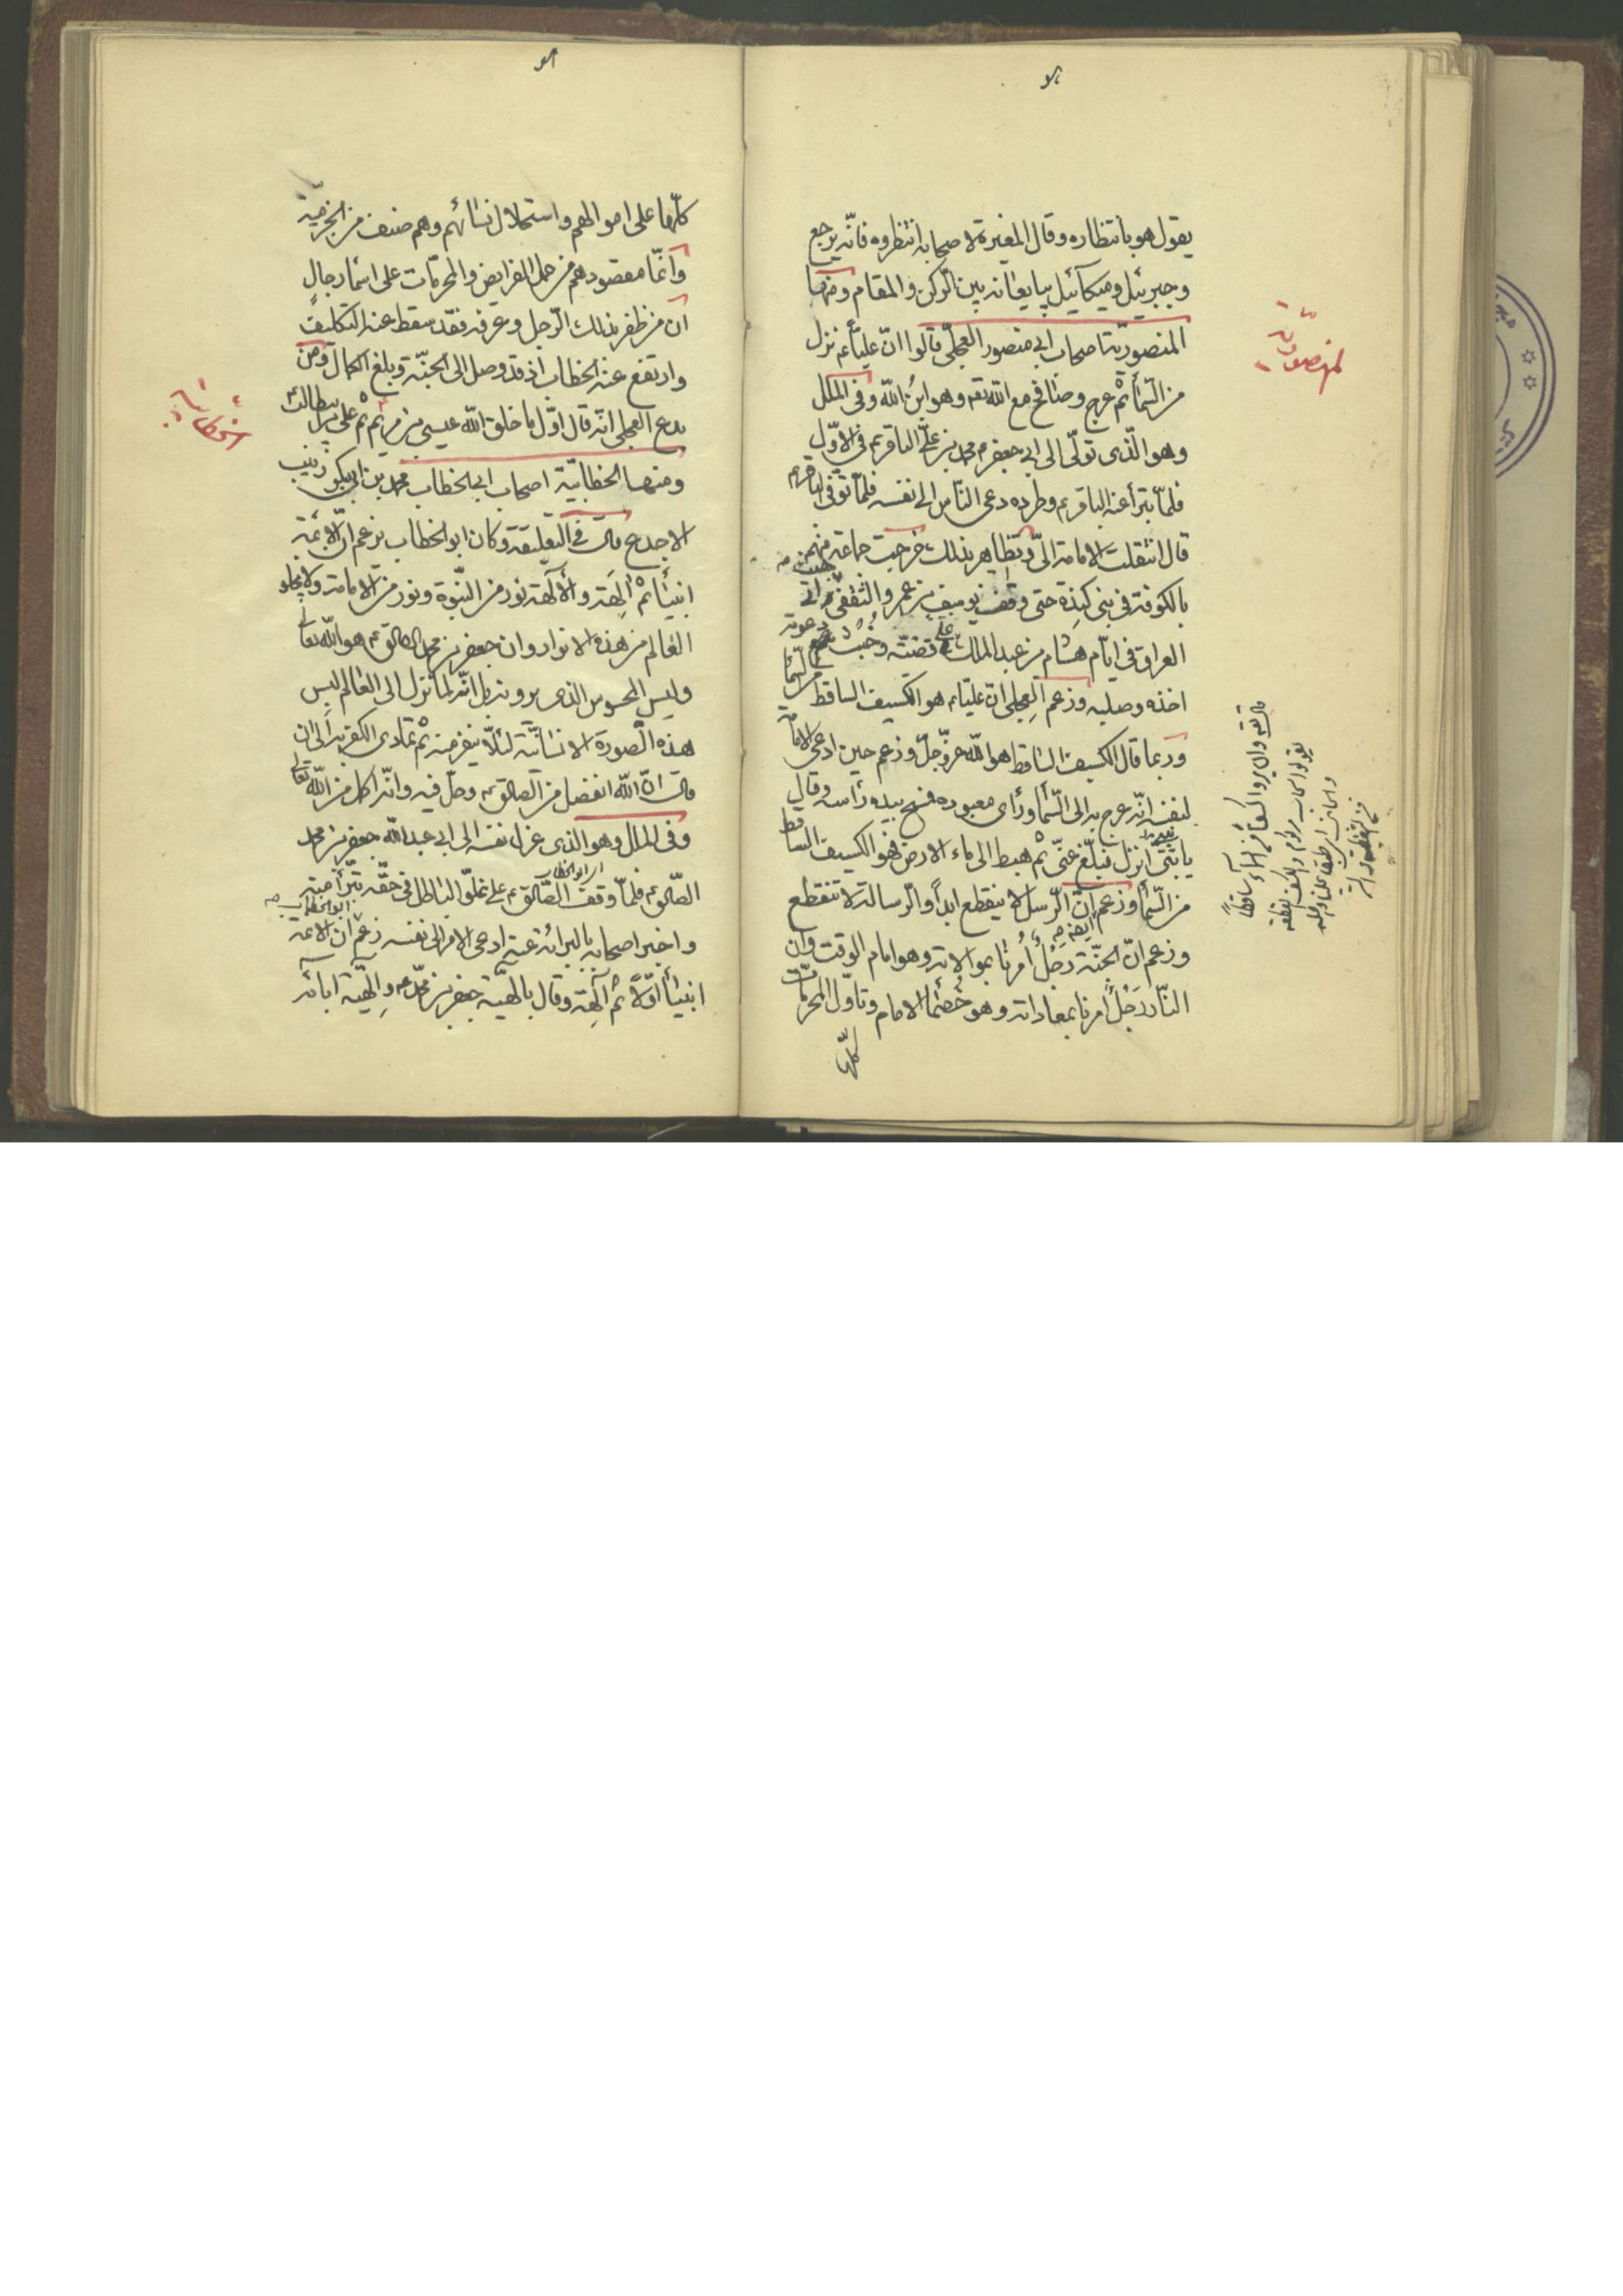 يقول هو بانتظاره وقال المغيرة لاصحابه انتظروه فانّه يرجع
وجبرئيل وميكائيل يبايعانه بين الرّكن والمقام ومنها
المنصوريّة اصحاب ابي منصور العجلّي قالوا انّ عليّاً ع نزل
من السّماء ثم عرج وصافح مع الله تعه وهو ابن الله وفي الملل
وهو الّذي تولّى الى ابي جعفر محمد بن علّي الباقر ع في الاوّل
فلمّا تبرأ عنه الباقر ع وطرده دعى النّاس الى نفسه فلمّا توّفى الباقر ع
قال انتقلت الامامة الىّ وتظاهر بذلك خرجت جماعة منهم
بالكوفة في بني كندة حتى وقف يوسف بن عمرو الثقفى
العراق في ايّام هشام بن عبد الملك على قصّته وخبث دعوته
اخذه وصلبه وزعم العجلى ان عليّا ع هو الكسيف الساقط من السّماء
وربما قال الكسيف الساقط هو الله عزّ وجلّ وزعم حين ادعى الامامة
لنفسه انّه عرج به الى السّماء ورأى معبوده فمسح بيده رأسه وقال
يا بنّى انزل فبلّغ عنّى ثم هبط الى الارض فهو الكسيف الساقط
من السّماء وزعم ايضا انّ الرّسل لا ينقطع ابداً والرّسالة لا تنقطع
وزعم انّ الجنّة رجلٌ أُمرنا بموالاته وهو امام الوقت وان
النّار رَجُلٌ امرنا بمعاداته وهو خصم الامام وتأوّل المحرّمات
كلّها
المنصوريّة
كلّها على اموالهم واستحلال نسائهم وهم صنف من الخرميّة
وانّما مقصودهم من حمل الفرايض والمحرّمات على اسماء رجالٍ
ان من ظفر بذلك الرّجل وعرفه فقد سقط عنه التكليف
وارتفع عنه الخطاب اذ قد وصل الى الجنّة وبلغ الكمال ومن
بدع العجلى انّه قال اوّل ما خلق الله عيسى بن مريم ثم على بن ابيطالب
ومنها الخطابيّة اصحاب ابي الخطاب محمد بن ابي زينب
الاجدع قال في التعليقة وكان ابو الخطاب يزعم انّ الائمّة
انبياء ثم آلهة والآلهة نور من النّبوة ونور من الامامة ولا يخلو
العالم من هذه الانوار وان جعفر بن محمد الصادق ع هو الله تعالى
وليس المحسوس الذى يرونه بل انّه لما نزل الى العالم لبس
هذه الصّورة الانسانيّة لئلّا ينفر منه ثم تمادى الكفر به الى ان
قال انّ الله انفصل من الصادق ع وحلّ فيه وانّه اكمل من الله تعالى
وفي الملل وهو الذى عزا نفسه الى ابي عبد الله جعفر بن محمد
الصّادق ع فلمّا وقف الصّادق ع على غلوّه الباطل في حقّه تبرّأ منه
واخبر اصحابه بالبرائة عنه ادعى الامر الى نفسه زعم ابو الخطاب ان الائمة
انبياءً اوّلاً ثم آلهة وقال بالهيّة جعفر بن محمّد والهيّة ابائه
خطابيّة